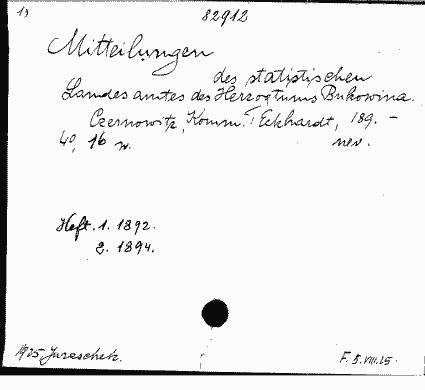 19
82912
Mitteilungen
des statistischen
Landesamtes des Herzogtums Bukowina.
Czernowitz, Komm. Eckhardt, 189. -
40, 16 nev.
Heft. 1. 1892.
2. 1894.
1925 Juraschek. F. 5. VIII. 25.